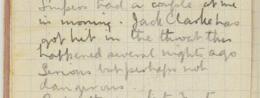 Snipers had a couple at me
in morning. Jack Clarke has
got hit in the throat this
happened several nights ago
Serious but perhaps not
dangerous